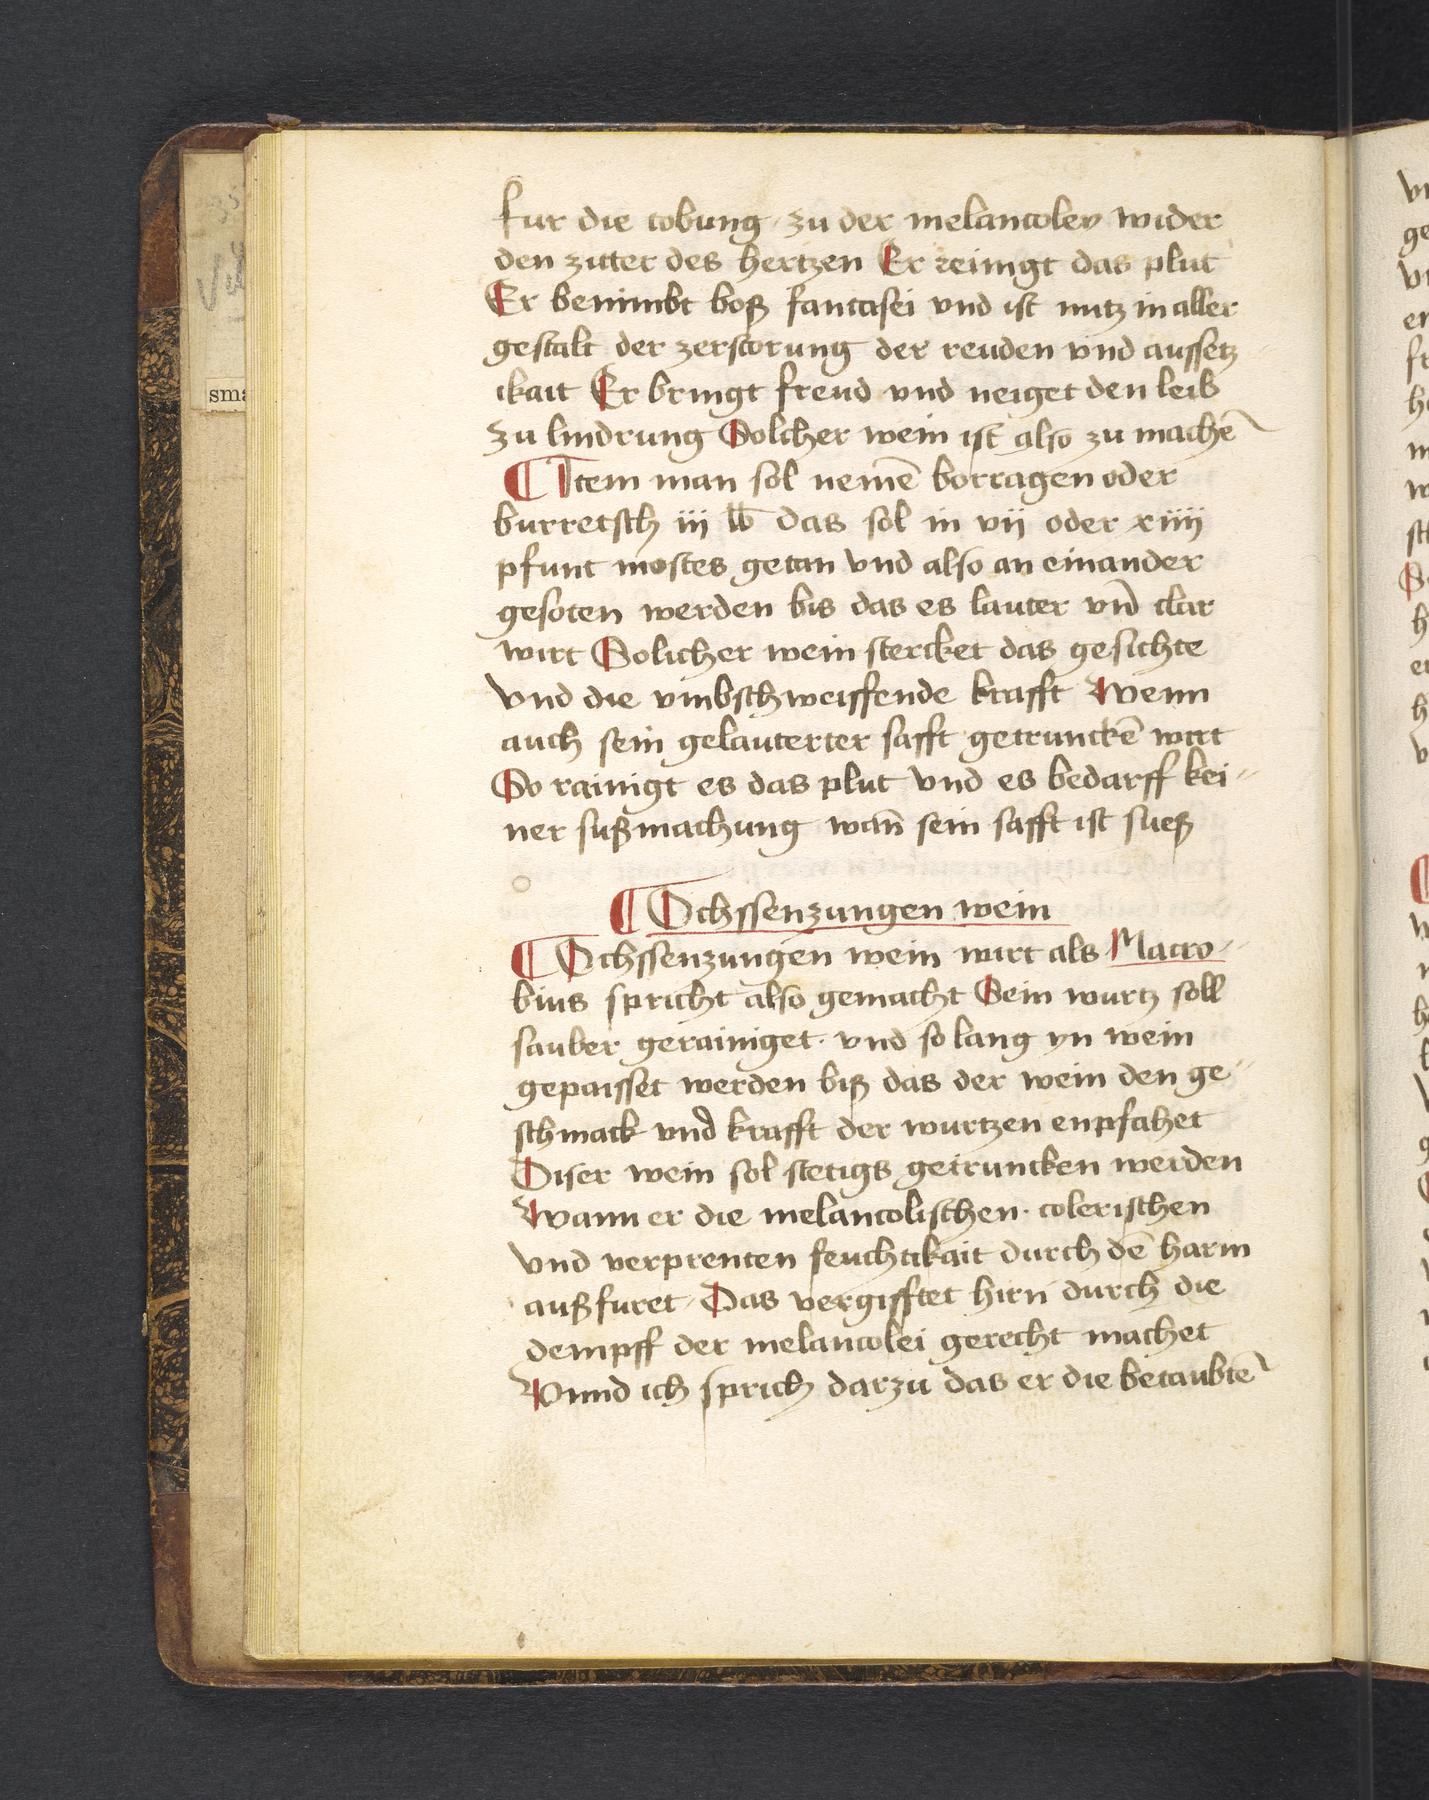 fur die tobung · zu der melancoley wider
den zitter des hertzen Er reinigt das plut
Er benimbt boß fantasei vnd ist nutz in aller
gestalt der zerstorung der reuden vnd aussetz
ikait Er bringt freud vnd neiget den leib
zu lindrung Solcher wein ist also zu machē
¶ Item man sol nemē borragen oder
burretsch iij ℔ das sol in vij oder xiiij
pfunt mostes getan vnd also an einander
gesoten werden bis das es lauter vn̄d clar
wirt Solicher wein stercket das gesichte
vnd die vmbschweiffende krafft Wenn
auch sein gelauterter safft getrunckē wirt
So rainigt es das plut vnd es bedarff kei-
ner sußmachung wan̄ sein safft ist sueß
¶ Ochssenzungen wein
¶ Ochssenzungen wein wirt als Macro-
bius spricht also gemacht Sein wurtz soll
sauber gerainiget · vnd so lang yn wein
gepaisset werden biß das der wein den ge-
schmack vnd krafft der wurtzen enpfahet
Diser wein sol stetigs getruncken werden
Wann er die melancolischen · colerischen
vnd verprenten feuchtikait durch dē harm
außfuret · Das vergifftet hirn durch die
dempff der melancolei gerecht machet
Vnnd ich sprich darzu das er die betaubtē
sma